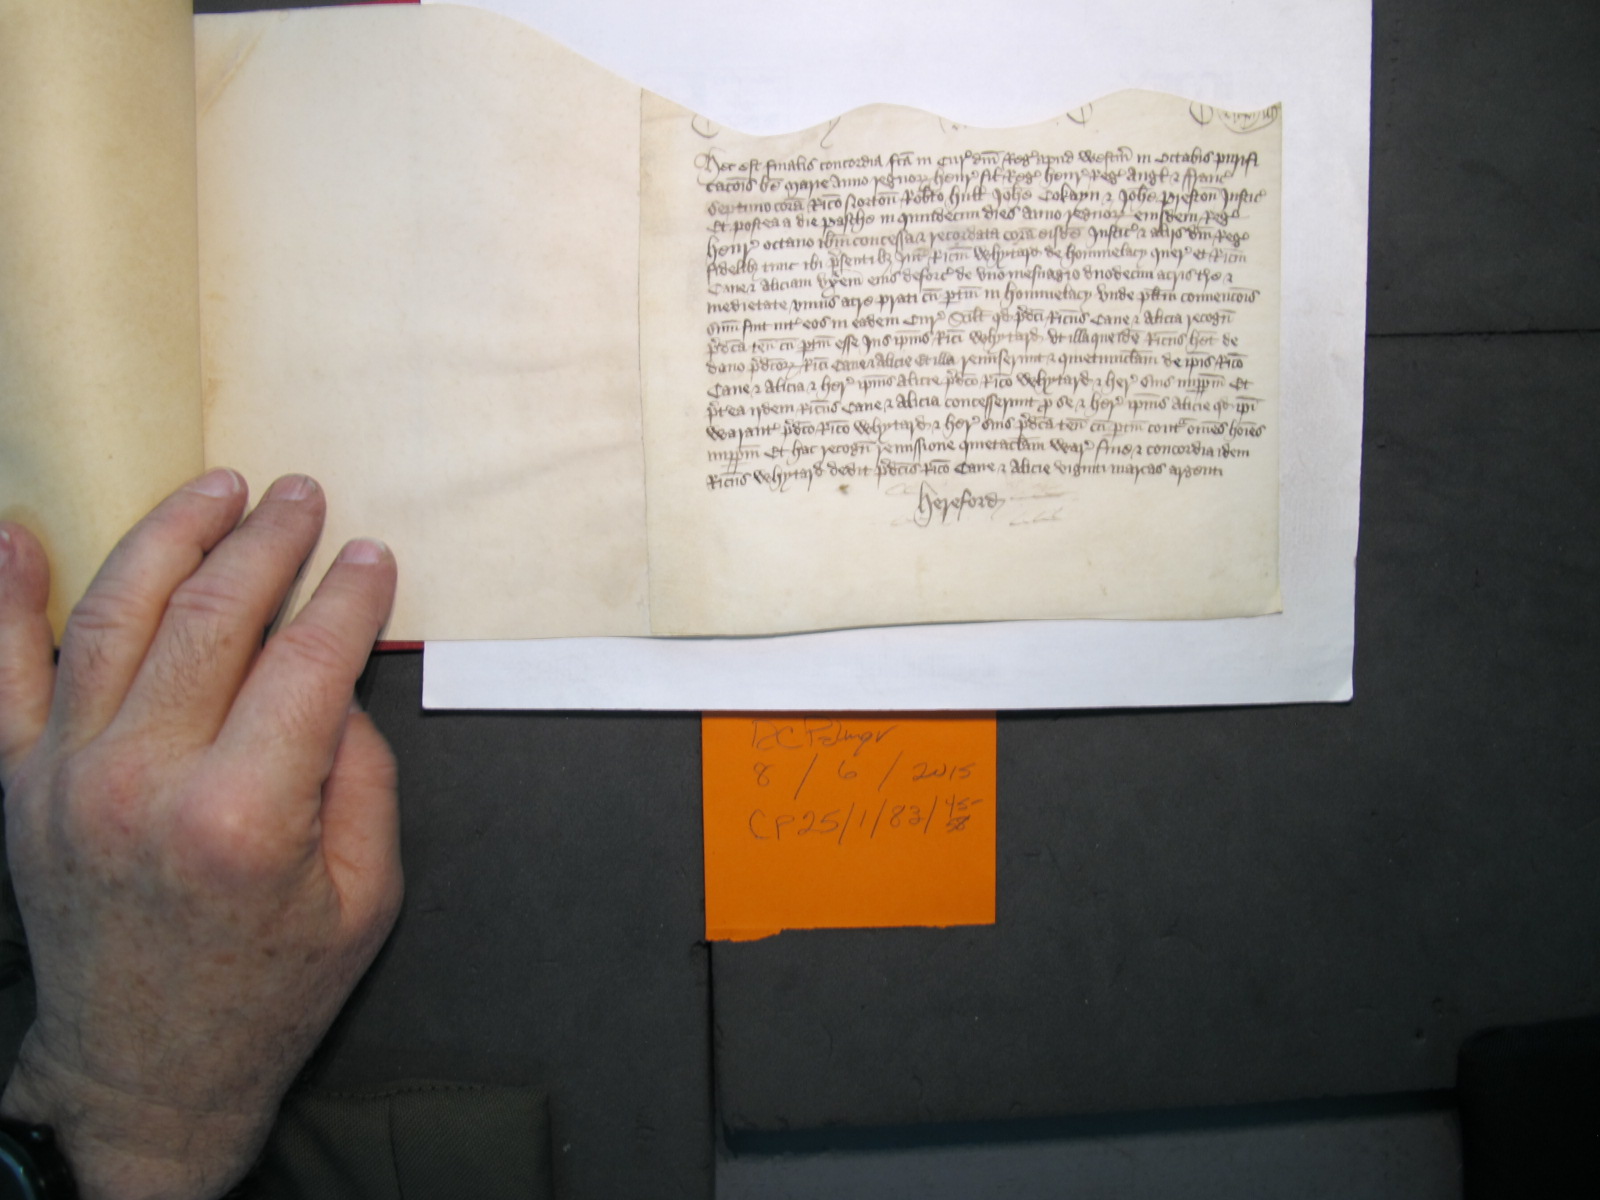 Hec est finalis concordia fca in Cur dni Reg apud Westm in Octabis purifi
cacois be Marie Anno regnor Henr fil Reg Henr Reg Angl & Franc
septimo cora Rico Norton Robto Hull Johe Cokayn & Johe Preston Justic
Et postea a die Pasche in quindecim dies Anno regnor eiusdem Reg
Henr octavo ibm concessa & recordata cora eisde Justic & aliis dni Reg
fidelib tunc ibi psentib Int Ricm Whytard de Hommelacy quer et Ricm
Cane & Aliciam uxem eius deforc de uno mesuagio duodecim acris tre &
medietate unius acre prati cu ptin in Hommelacy Unde plitm convencois
sum fuit int eos in eadem Cur Scilt qd pdci Ricus Cane & Alicia recogn
pdca ten cu ptin esse Jus ipius Rici Whytard Ut illa que ide Ricus het de
dono pdcor Rici Cane & Alicie Et illa remiserunt & quietumclam de ipis Rico
Cane & Alicia & her ipius Alicie pdco Rico Whytard & her suis imppm Et
pterea iidem Ricus Cane & Alicia concesserunt p se & her ipius Alicie qd ipi
Warant pdco Rico Whytard & her suis pdca ten cu ptin cont omes hoies
imppm Et hac recogn remissione quietaclam War fine & concordia idem
Ricus Whytard dedit pdcis Rico Cane & Alicie viginti marcas argenti
Hereford
8 / 6 / 2015
CP25/1/83/45-
58